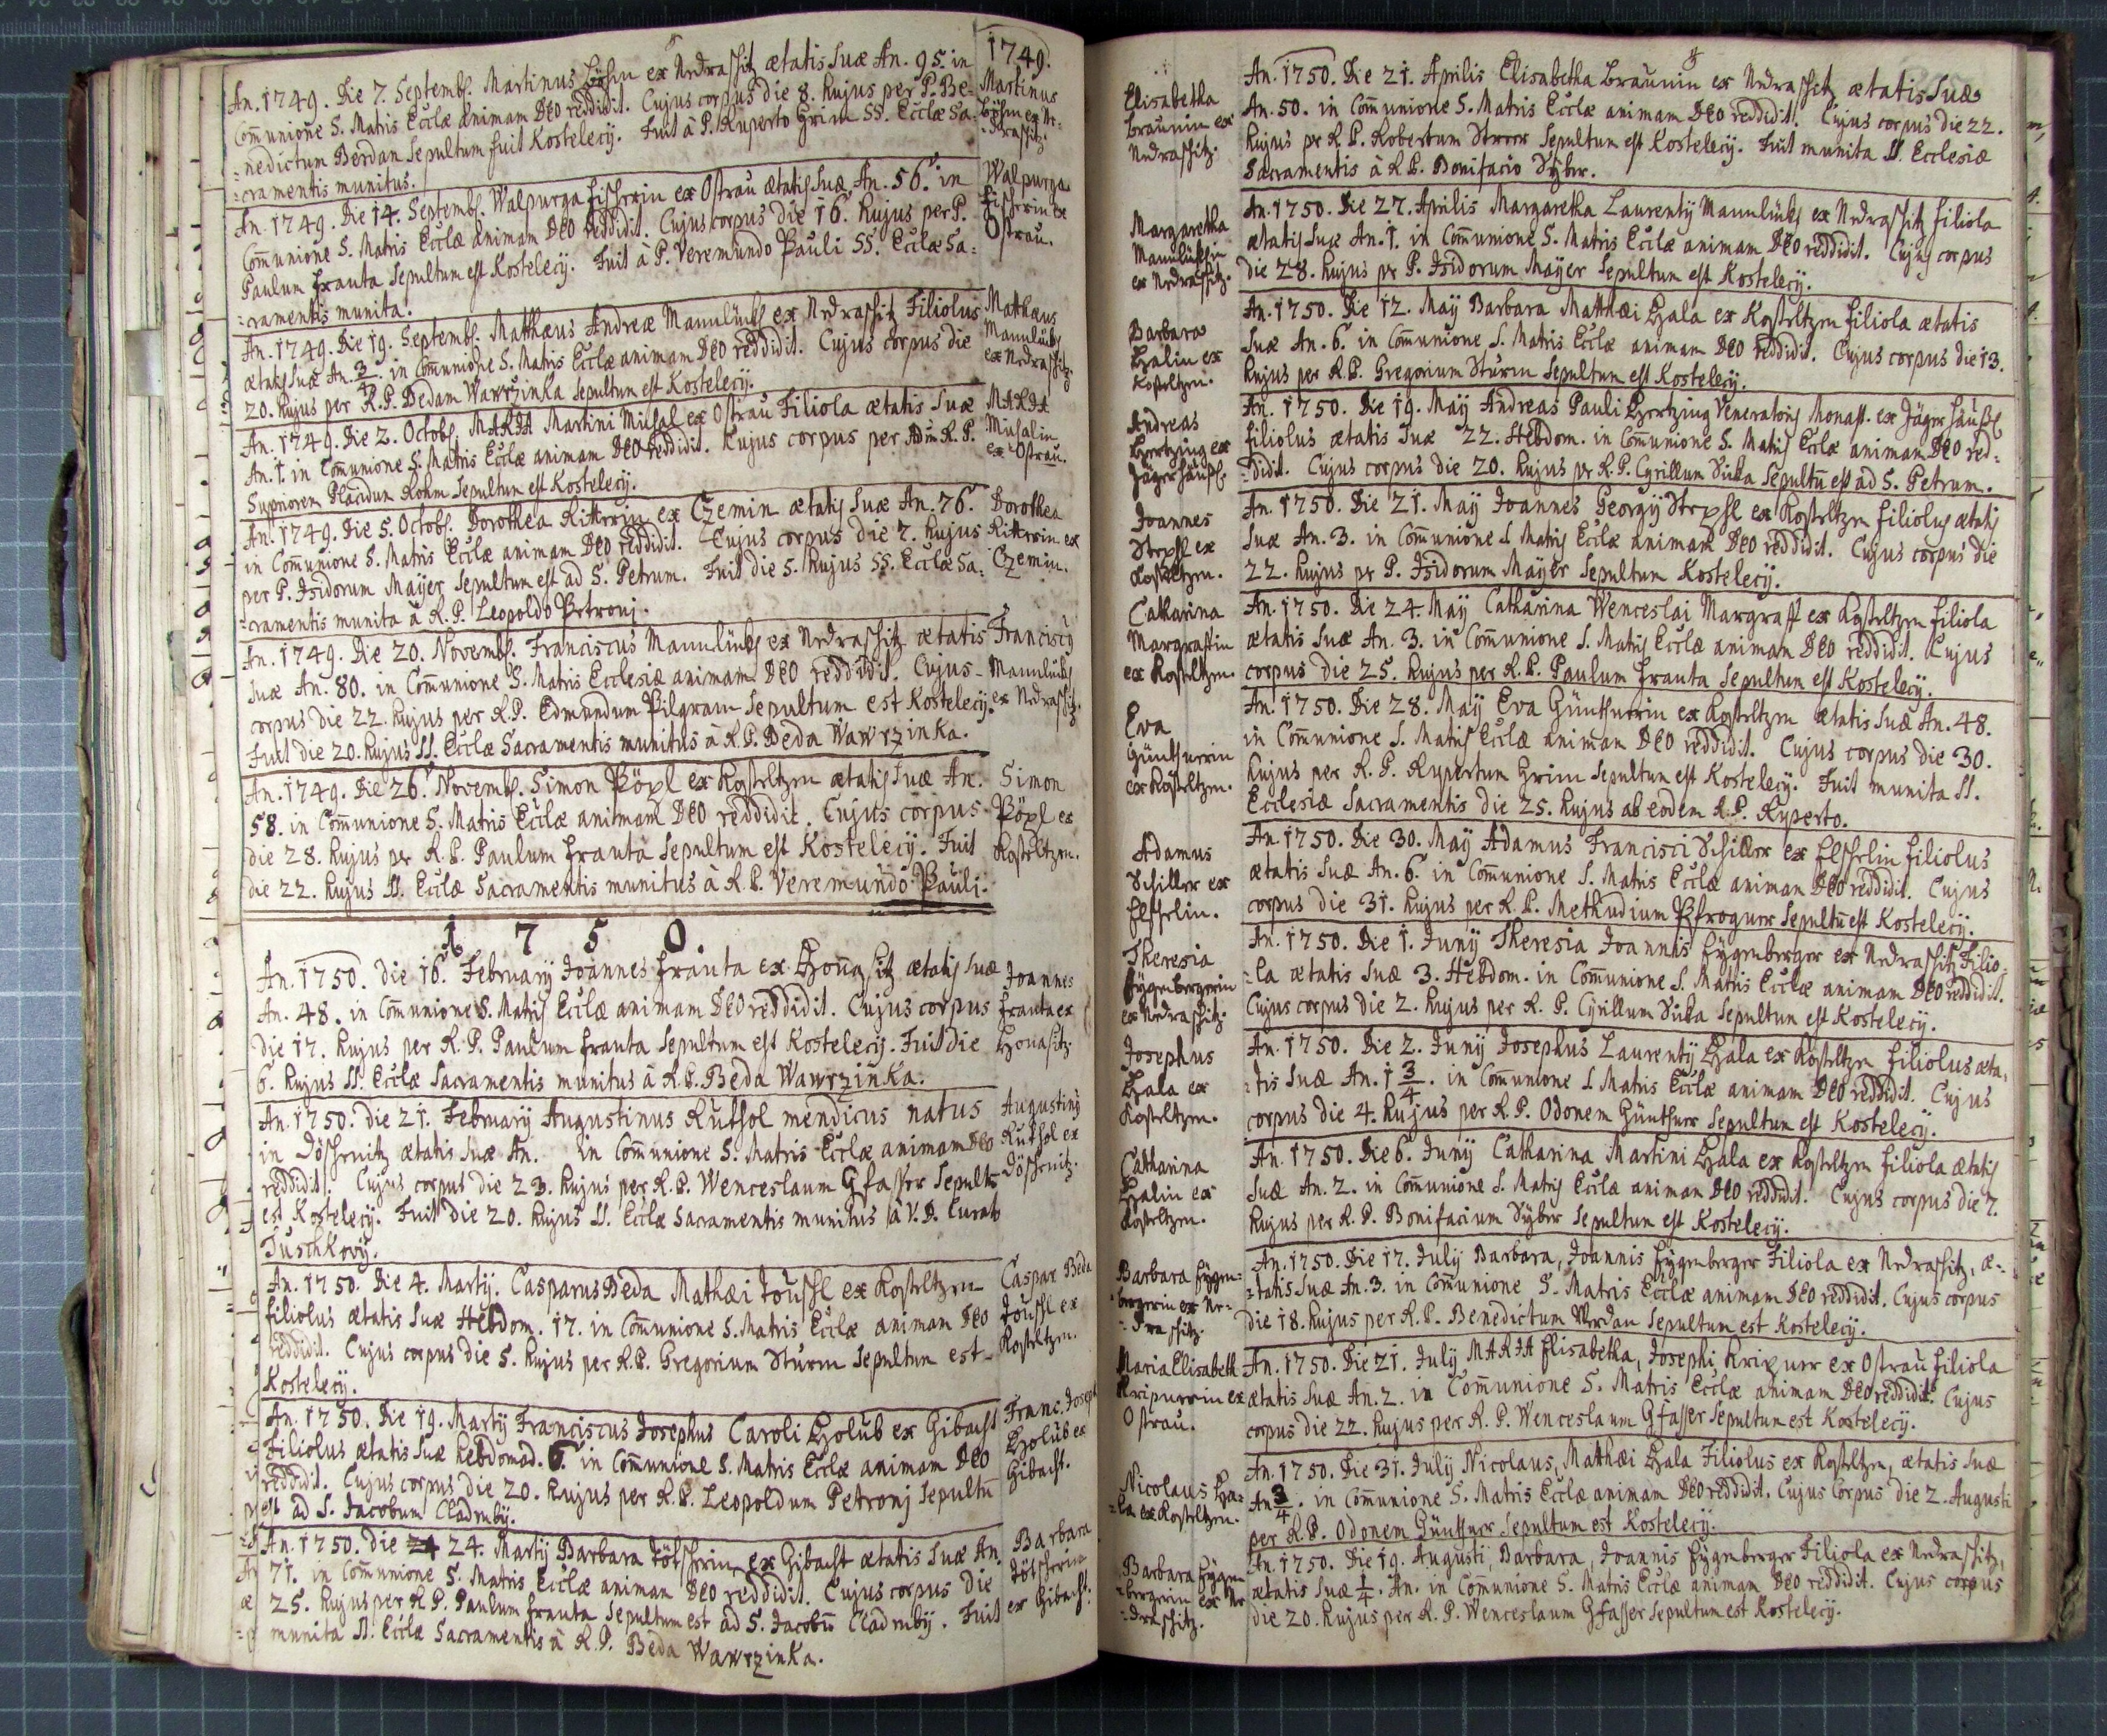 1749.
An. 1749. Die 7. Septembr. Martinus Böhm ex Nedraschitz ætatis Suæ An. 95. in
Com̄unione S. Matris Ecclæ animam DEO reddidit. Cujus corpus die 8. hujus per P. Be-
=nedictum Berdan Sepultum fuit Kostelecij. Fuit à P. Ruperto Grim SS. Ecclæ Sa=
=cramentis munitus.
Martinus
Böhm ex Ne=
=draschitz.
An. 1749. Die 14. Septembr. Walpurga Fischerin ex Ostrau ætatis Suæ An. 56. in
Com̄unione S. Matris Ecclæ animam DEO reddidit. Cujus corpus die 16. hujus per P.
Paulum Frauta Sepultum est Kostelecij. Fuit à P. Veremundo Pauli SS. Ecclæ Sa=
=cramentis munita.
Walpurga
Fischerin ex
Ostrau.
An. 1749. Die 19. Septembr. Matthæus Andreæ Mannlüks ex Nedraschitz Filiolus
ætatis Suæ An. 3/4. in Com̄unione S. Matris Ecclæ animam DEO reddidit. Cujus corpus die
20. hujus per R.P. Bedam Wawrzinka Sepultum est Kostelecij.
Mathæus
Mannlüks
ex Nedraschitz
An. 1749. Die 2. Octobr. MARIA Martini Musal ex Ostrau Filiola ætatis Suæ
An. 1. in Com̄unione S. Matris Ecclæ animam DEO reddidit. Cujus corpus per Adm R.P.
Suppriorem Placidum Rohm Sepultum est Kostelecij.
MARIA
Musalin
ex Ostrau.
An. 1749. Die 5. Octobr. Dorothea Ritterin ex Czemin ætatis Suæ An. 76.
in Com̄unione S. Matris Ecclæ animam DEO reddidit. Cujus corpus die 7. hujus
per P. Isidorum Mayer Sepultum est ad S. Petrum. Fuit die 5. hujus SS. Ecclæ Sa=
=cramentis munita à R.P. Leopoldo Petronj.
Dorothea
Ritterin ex
Czemin.
An. 1749. Die 20. Novembr. Franciscus Mannlüks ex Nedraschitz ætatis
Suæ An. 80. in Com̄unione S. Matris Ecclesiæ animam DEO reddidit. Cujus
corpus die 22. hujus per R.P. Edmundum Pilgram Sepultum est Kostelecij.
Fuit die 20. hujus SS. Ecclæ Sacramentis munitus à R.P. Beda Wawrzinka.
Franciscus
Mannlüks
ex Nedraschitz.
An. 1749. Die 26. Novembr. Simon Pöpl ex Kosteltzen ætatis Suæ An.
58. in Com̄unione S. Matris Ecclæ animam DEO reddidit. Cujus corpus
die 28. hujus per R.P. Paulum Frauta Sepultum est Kostelecij. Fuit
die 22. hujus SS. Ecclæ Sacramentis munitus à R.P. Veremundo Pauli.
Simon
Pöpl ex
Kosteltzen.
1750.
An. 1750. die 16. February Joannes Frauta ex Honasitz ætatis suæ
An. 48. in Com̄unione S. Matris Ecclæ animam DEO reddidit. Cujus corpus
die 17. hujus per R.P. Paulum Frauta Sepultum est Kostelecij. Fuit die
6. hujus SS. Ecclæ Sacramentis munitus à R.P. Beda Wawrzinka.
Joannes
Frauta ex
Honasitz.
An. 1750. die 21. February Augustinus Kuthol mendicus natus
in Döschenitz ætatis Suæ An. in Com̄unione S. Matris Ecclæ animam DEO
reddidit. Cujus corpus die 23. hujus per R.P. Wenceslaum Gfasser Sepultū
est Kostelecij. Fuit die 20. hujus SS. Ecclæ Sacramentis munitus à V.D. Curato
Tuschkovij.
Augustinus
Kuthol ex
Döschenitz.
An. 1750. Die 4. Martij. Casparus Beda Mathæi Touschl ex Kosteltzen
filiolus ætatis Suæ Hebdom. 17. in Com̄unione S. Matris Ecclæ animam DEO
reddidit. Cujus corpus die 5. hujus per R.P. Gregorium Sturm Sepultum est
Kostelecij.
Caspar Beda
Touschl ex
Kosteltzen.
An. 1750. Die 19. Martij Franciscus Josephus Caroli Holub ex Gibacht
Filiolus ætatis Suæ hebdomad. 6. in Com̄unione S. Matris Ecclæ animam DEO
reddidit. Cujus corpus die 20. hujus per R.P. Leopoldum Petronj Sepultū
est ad S. Jacobum Cladruby.
Franc. Joseph
Holub ex
Gibacht.
An. 1750. Die 24. Martij Barbara Tötscherin ex Gibacht ætatis Suæ An.
71. in Com̄unione S. Matris Ecclæ animam DEO reddidit. Cujus corpus die
25. hujus per R.P. Paulum Frauta Sepultum est ad S. Jacobū Cladruby. Fuit
munita SS. Ecclæ Sacramentis à R.P. Beda Wawrzinka.
Barbara
Tötscherin
ex Gibacht.
Elisabetha
Braunin ex
Nedraschitz.
An. 1750. Die 21. Aprilis Elisabetha Braunin ex Nedraschitz ætatis Suæ
An. 50. in Com̄unione S. Matris Ecclæ animam DEO reddidit. Cujus corpus die 22.
hujus per R.P. Robertum Sterer Sepultum est Kostelecij. Fuit munita SS. Ecclesiæ
Sacramentis à R.P. Bonifacio Syber.
Margaretha
Mannlüksin
ex Nedraschitz.
An. 1750. Die 27. Aprilis Margaretha Laurentij Mannlüks ex Nedraschitz filiola
ætatis Suæ An. 1. in Com̄unione S. Matris Ecclæ animam DEO reddidit. Cujus corpus
die 28. hujus per P. Isidorum Mayer Sepultum est Kostelecij.
Barbara
Halin ex
Kosteltzen.
An. 1750. Die 12. May Barbara Matthæi Hala ex Kosteltzen filiola ætatis
Suæ An. 6. in Com̄unione S. Matris Ecclæ animam DEO reddidit. Cujus corpus die 13.
hujus per R.P. Gregorium Sturm Sepultum est Kostelecij.
Andreas
Hertzing ex
Jägerhäusl.
An. 1750. Die 19. May Andreas Pauli Hertzing Venatoris Monast. ex Jägerhäusl
filiolus ætatis Suæ 22. Hebdom. in Com̄unione S. Matris Ecclæ animam DEO red=
=didit. Cujus corpus die 20. hujus per R.P. Cyrillum Sicka Sepultū est ad S. Petrum.
Joannes
Stepfl ex
Kosteltzen.
An. 1750. Die 21. May Joannes Georgij Stepfl ex Kosteltzen filiolus ætatis
Suæ An. 3. in Com̄unione S. Matris Ecclæ animam DEO reddidit. Cujus corpus die
22. hujus per P. Isidorum Mayer Sepultum Kostelecij.
Catharina
Margraffin
ex Kosteltzen.
An. 1750. Die 24. May Catharina Wenceslai Margraff ex Kosteltzen filiola
ætatis Suæ An. 3. in Com̄unione S. Matris Ecclæ animam DEO reddidit. Cujus
corpus die 25. hujus per R.P. Paulum Frauta Sepultum est Kostelecij.
Eva
Günthnerin
ex Kosteltzen.
An. 1750. Die 28. May Eva Günthnerin ex Kosteltzen ætatis Suæ An. 48.
in Com̄unione S. Matris Ecclæ animam DEO reddidit. Cujus corpus die 30.
hujus per R.P. Rupertum Grim Sepultum est Kostelecij. Fuit munita SS.
Ecclesiæ Sacramentis die 25. hujus ab eodem R.P. Ruperto.
Adamus
Schiller ex
Elschelin.
An. 1750. Die 30. May Adamus Francisci Schiller ex Elschelin filiolus
ætatis Suæ An. 6. in Com̄unione S. Matris Ecclæ animam DEO reddidit. Cujus
corpus die 31. hujus per R.P. Methudium Pfrogner Sepultū est Kostelecij.
Theresia
Fygenbergerin
ex Nedraschitz.
An. 1750. Die 1. Juny Theresia Joannis Fygenberger ex Nedraschitz Filio=
=la ætatis Suæ 3. Hebdom. in Com̄unione S. Matris Ecclæ animam DEO reddidit.
Cujus corpus die 2. hujus per R.P. Cyrillum Sicka Sepultum est Kostelecij.
Josephus
Hala ex
Kosteltzen.
An. 1750. Die 2. Juny Josephus Laurentij Hala ex Kosteltzen filiolus æta=
=tis Suæ An. 1 3/4. in Com̄unione S. Matris Ecclæ animam DEO reddidit. Cujus
corpus die 4. hujus per R.P. Odonem Günthner Sepultum est Kostelecij.
Catharina
Halin ex
Kosteltzen.
An. 1750. Die 6. Juny Catharina Martini Hala ex Kosteltzen filiola ætatis
Suæ An. 2. in Com̄unione S. Matris Ecclæ animam DEO reddidit. Cujus corpus die 7.
hujus per R.P. Bonifacium Syber Sepultum est Kostelecij.
Barbara Fygen=
=bergerin ex Ne=
=draschitz.
An. 1750. Die 17. July Barbara, Joannis Fygenberger Filiola ex Nedraschitz, æ=
=tatis Suæ An. 3. in Com̄unione S. Matris Ecclæ animam DEO reddidit. Cujus corpus
die 18. hujus per R.P. Benedictum Werdan Sepultum est Kostelecij.
Maria Elisabeth
Kripnerin ex
Ostrau.
An. 1750. Die 21. July MARIA Elisabetha, Josephi Kripner ex Ostrau filiola
ætatis Suæ An. 2. in Com̄unione S. Matris Ecclæ animam DEO reddidit. Cujus
corpus die 22. hujus per R.P. Wenceslaum Gfasser Sepultum est Kostelecij.
Nicolaus Ha=
=la ex Kosteltzen.
An. 1750. Die 31. July Nicolaus, Mathæi Hala Filiolus ex Kosteltzen, ætatis Suæ
An 3/4. in Com̄unione S. Matris Ecclæ animam DEO reddidit. Cujus Corpus die 2. Augusti
per R.P. Odonem Günthner Sepultum est Kostelecij.
Barbara Fygen
=bergerin ex Ne
=draschitz.
An. 1750. Die 19. Augusti, Barbara, Joannis Fygenberger Filiola ex Nedraschitz,
ætatis Suæ 1/4. An. in Com̄unione S. Matris Ecclæ animam DEO reddidit. Cujus corpus
die 20. hujus per R.P. Wenceslaum Gfasser Sepultum est Kostelecij.